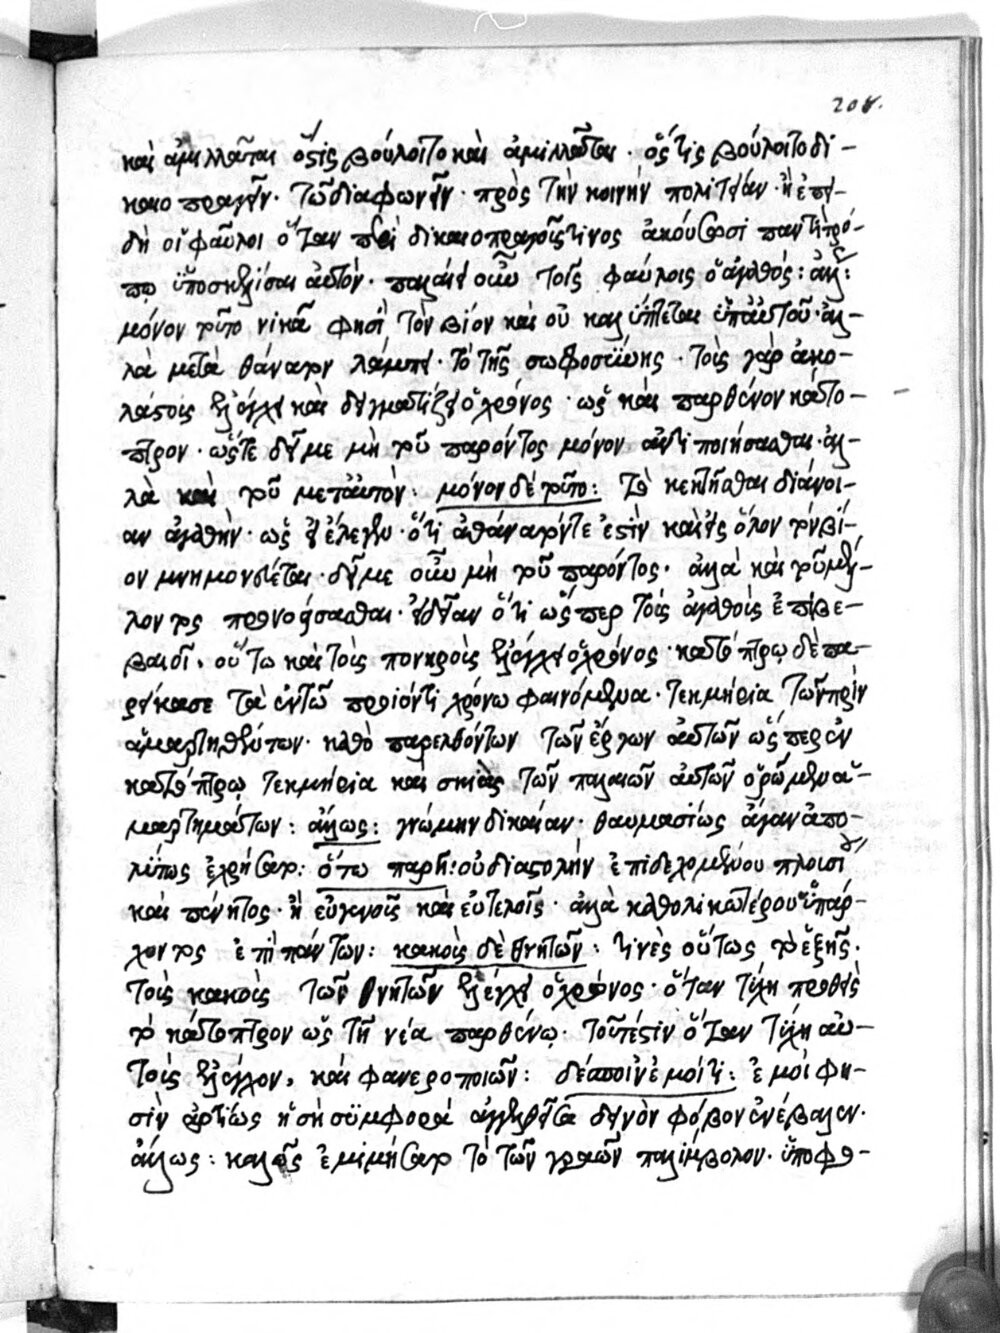 208.
καὶ ἁμιλλᾶται ὅστις βούλοιτο καὶ ἁμιλλᾶται · ὅστις βούλοιτο δι-
καιοπραγεῖν · τῶ διαφωνεῖν · πρὸς τὴν κοινὴν πολιτείαν · ἢ ἐπει-
δὴ οἱ φαῦλοι ὅταν περὶ δικαιοπραγοῦς τινος ἀκούσωσι παντὶ τρό-
πω ὑποσκελίσαι αὐτόν · παλαίει οὖν τοῖς φαύλοις ὁ ἀγαθός : ἄλλως :
μόνον τοῦτο νικᾶν φησὶ τὸν βίον καὶ οὐ καλύπτεται ὑπ' αὐτοῦ · ἀλ-
λὰ μετὰ θάνατον λάμπει · τὸ τῆς σωφροσύνης · τοὺς γὰρ ἀκο-
λάστους ἐλέγχει καὶ δειγματίζει ὁ χρόνος · ὡς καὶ παρθένον κάτο-
πτρον · ὥστε δεῖ με μὴ τοῦ παρόντος μόνον ἀντιποιήσασθαι · ἀλ-
λὰ καὶ τοῦ μετ' αὐτόν : μόνον δὲ τοῦτο : τὸ κεκτῆσθαι διάνοι-
αν ἀγαθήν · ὡς εἰ ἔλεγεν · ὅτι ἀθάνατόν τε ἐστὶν καὶ εἰς ὅλον τὸν βί-
ον μνημονεύεται · δεῖ με οὖν μὴ τοῦ παρόντος · ἀλλὰ καὶ τοῦ μέλ-
λοντος προνοήσασθαι · εἰδυῖαν ὅτι ὥσπερ τοὺς ἀγαθοὺς ἐπιβε-
βαιοῖ, οὕτω καὶ τοὺς πονηροὺς ἐλέγχει ὁ χρόνος · κατόπτρω δὲ πα-
ρείκασε τὰ ἐν τῶ προιόντι χρόνω φαινόμενα · τεκμήρια τῶν πρὶν
ἁμαρτηθέντων · καθὸ παρελθόντων τῶν ἔργων αὐτῶν ὥσπερ ἐν
κατόπτρω τεκμήρια καὶ σκιὰς τῶν παλαιῶν αὐτῶν ὁρῶμεν ἁ-
μαρτημάτων : ἄλλως : γνώμην δικαίαν · θαυμασίως ἄγαν ἀπο-
λύτως ἐχρήσατο : ὅτω παρῆ : οὐ διαστολὴν ἐπιδεχομένου πλουσίου
καὶ πένητος · ἢ εὐγενοῦς καὶ εὐτελοῦς · ἀλλὰ καθολικωτέρου ὑπάρ-
χοντος ἐπὶ πάντων : κακοὺς δὲ θνητῶν : τινὲς οὕτως τὸ ἑξῆς ·
τοὺς κακοὺς τῶν θνητῶν ἐλέγχει ὁ χρόνος · ὅταν τύχη προθεὶς
τὸ κάτοπτρον ὡς τῆ νέα παρθένω · τουτέστιν ὅταν τύχη αὐ-
τοὺς ἐλέγχων, καὶ φανεροποιῶν : δέσποιν' ἐμοί τι : ἐμοί φη-
σὶν ἀρτίως ἡ σὴ συμφορὰ ἀγγελθεῖσα δεινὸν φόβον ἐνέβαλεν ·
ἄλλως : καλῶς ἐμιμήσατο τὸ τῶν γραῶν παλίμβολον · ὑποφθο-